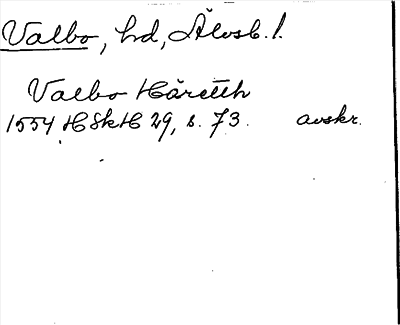 Valbo, hd, Älvsb. l.
Valbo Häreth
1554 HSkH 29, s. 73. avskr.